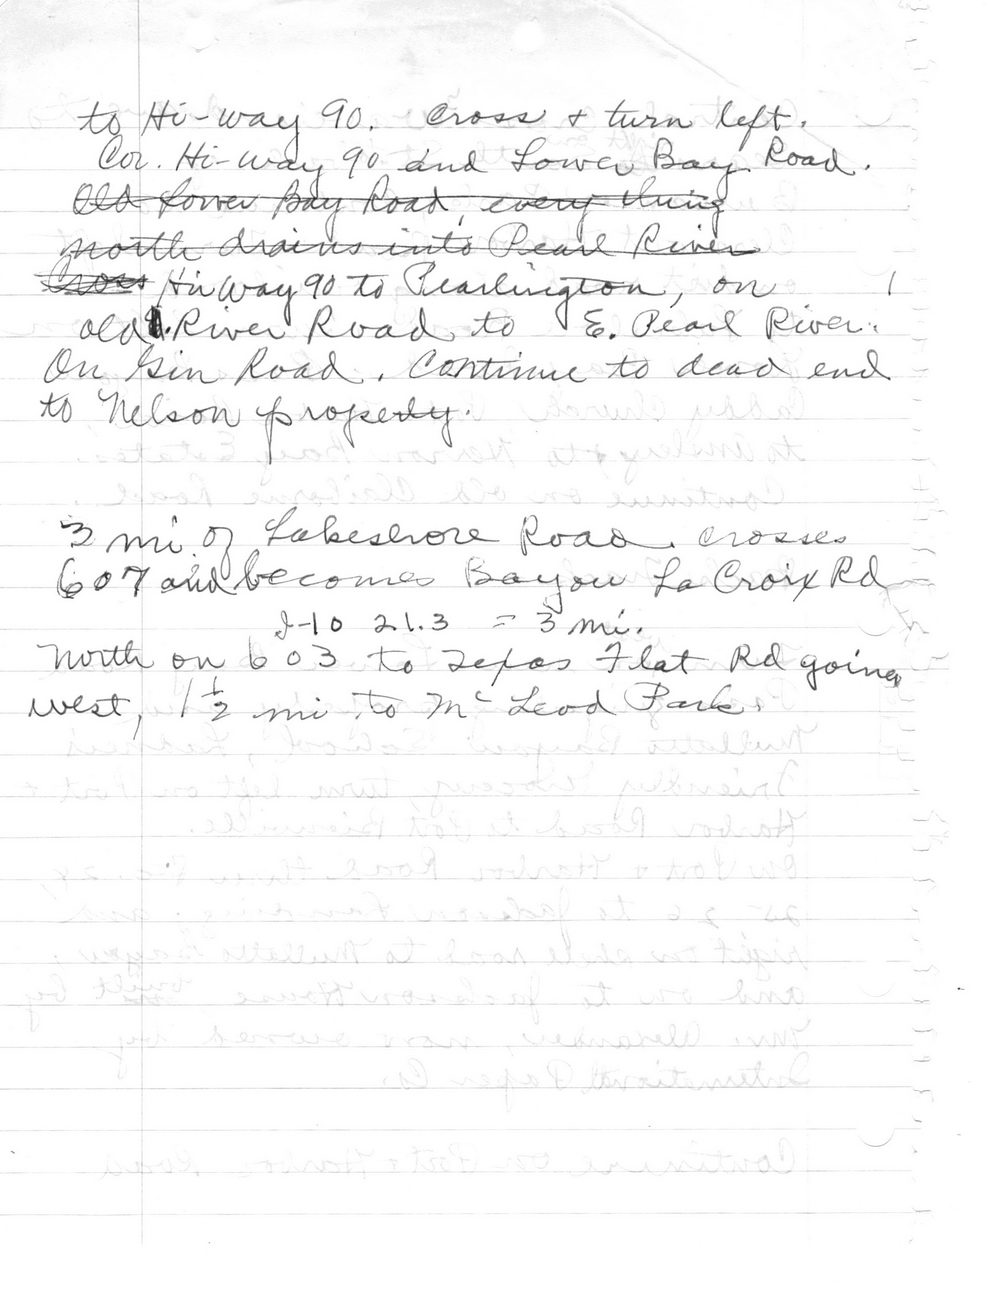 to Hi-way 90. Cross & turn left.
Cor. Hi-way 90 and Lower Bay Road.
Old Lower Bay Road, every thing
north drains into Pearl River
Cross Hiway 90 to Pearlington, on
old River Road to E. Pearl River.
On Gin Road. Continue to dead end
to Nelson property.
3 mi of Lakeshore Road crosses
607 and becomes Bayou La Croix Rd
I-10 21.3 = 3 mi.
North on 603 to Texas Flat Rd going
west, 1 1/2 mi to Mc Leod Park.